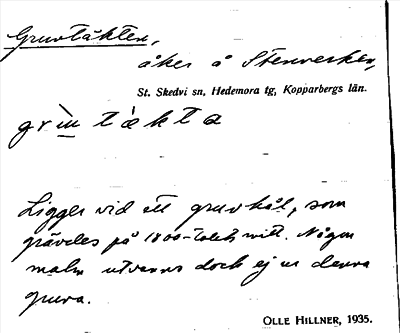 Gruvtäkten,
åker å Stenverken,
St. Skedvi sn, Hedemora tg, Kopparbergs län.
grùvtèkta
Ligger vid ett gruvhål, som
grävdes på 1800-talets mitt. Någon
malm utvanns dock ej ur denna
gruva.
OLLE HILLNER, 1935.